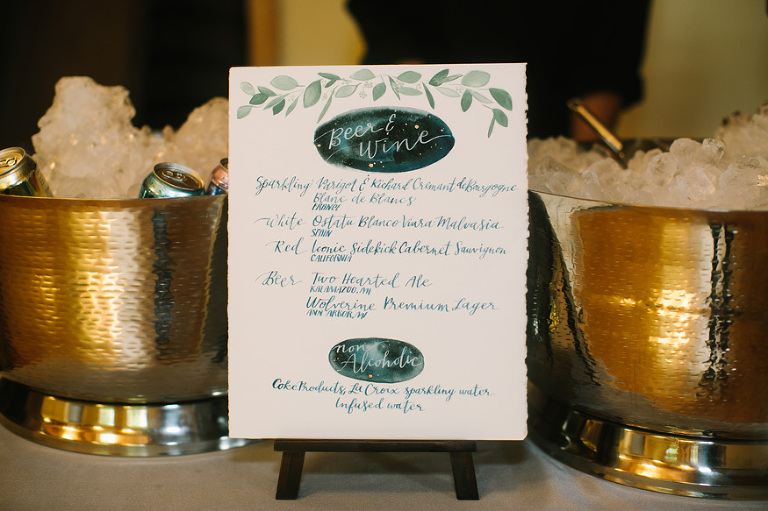 Beer &
Wine
Sparkling Perigot & Richard Cremant de Bourgogne
Blanc de Blancs
FRANCE
White Ostatu Blanco Viura Malvasia
SPAIN
Red Iconic Sidekick Cabernet Sauvignon
CALIFORNIA
Beer Two Hearted Ale
KALAMAZOO, MI
Wolverine Premium Lager
ANN ARBOR, MI
non
Alcoholic
Coke Products, La Croix sparkling water,
Infused water